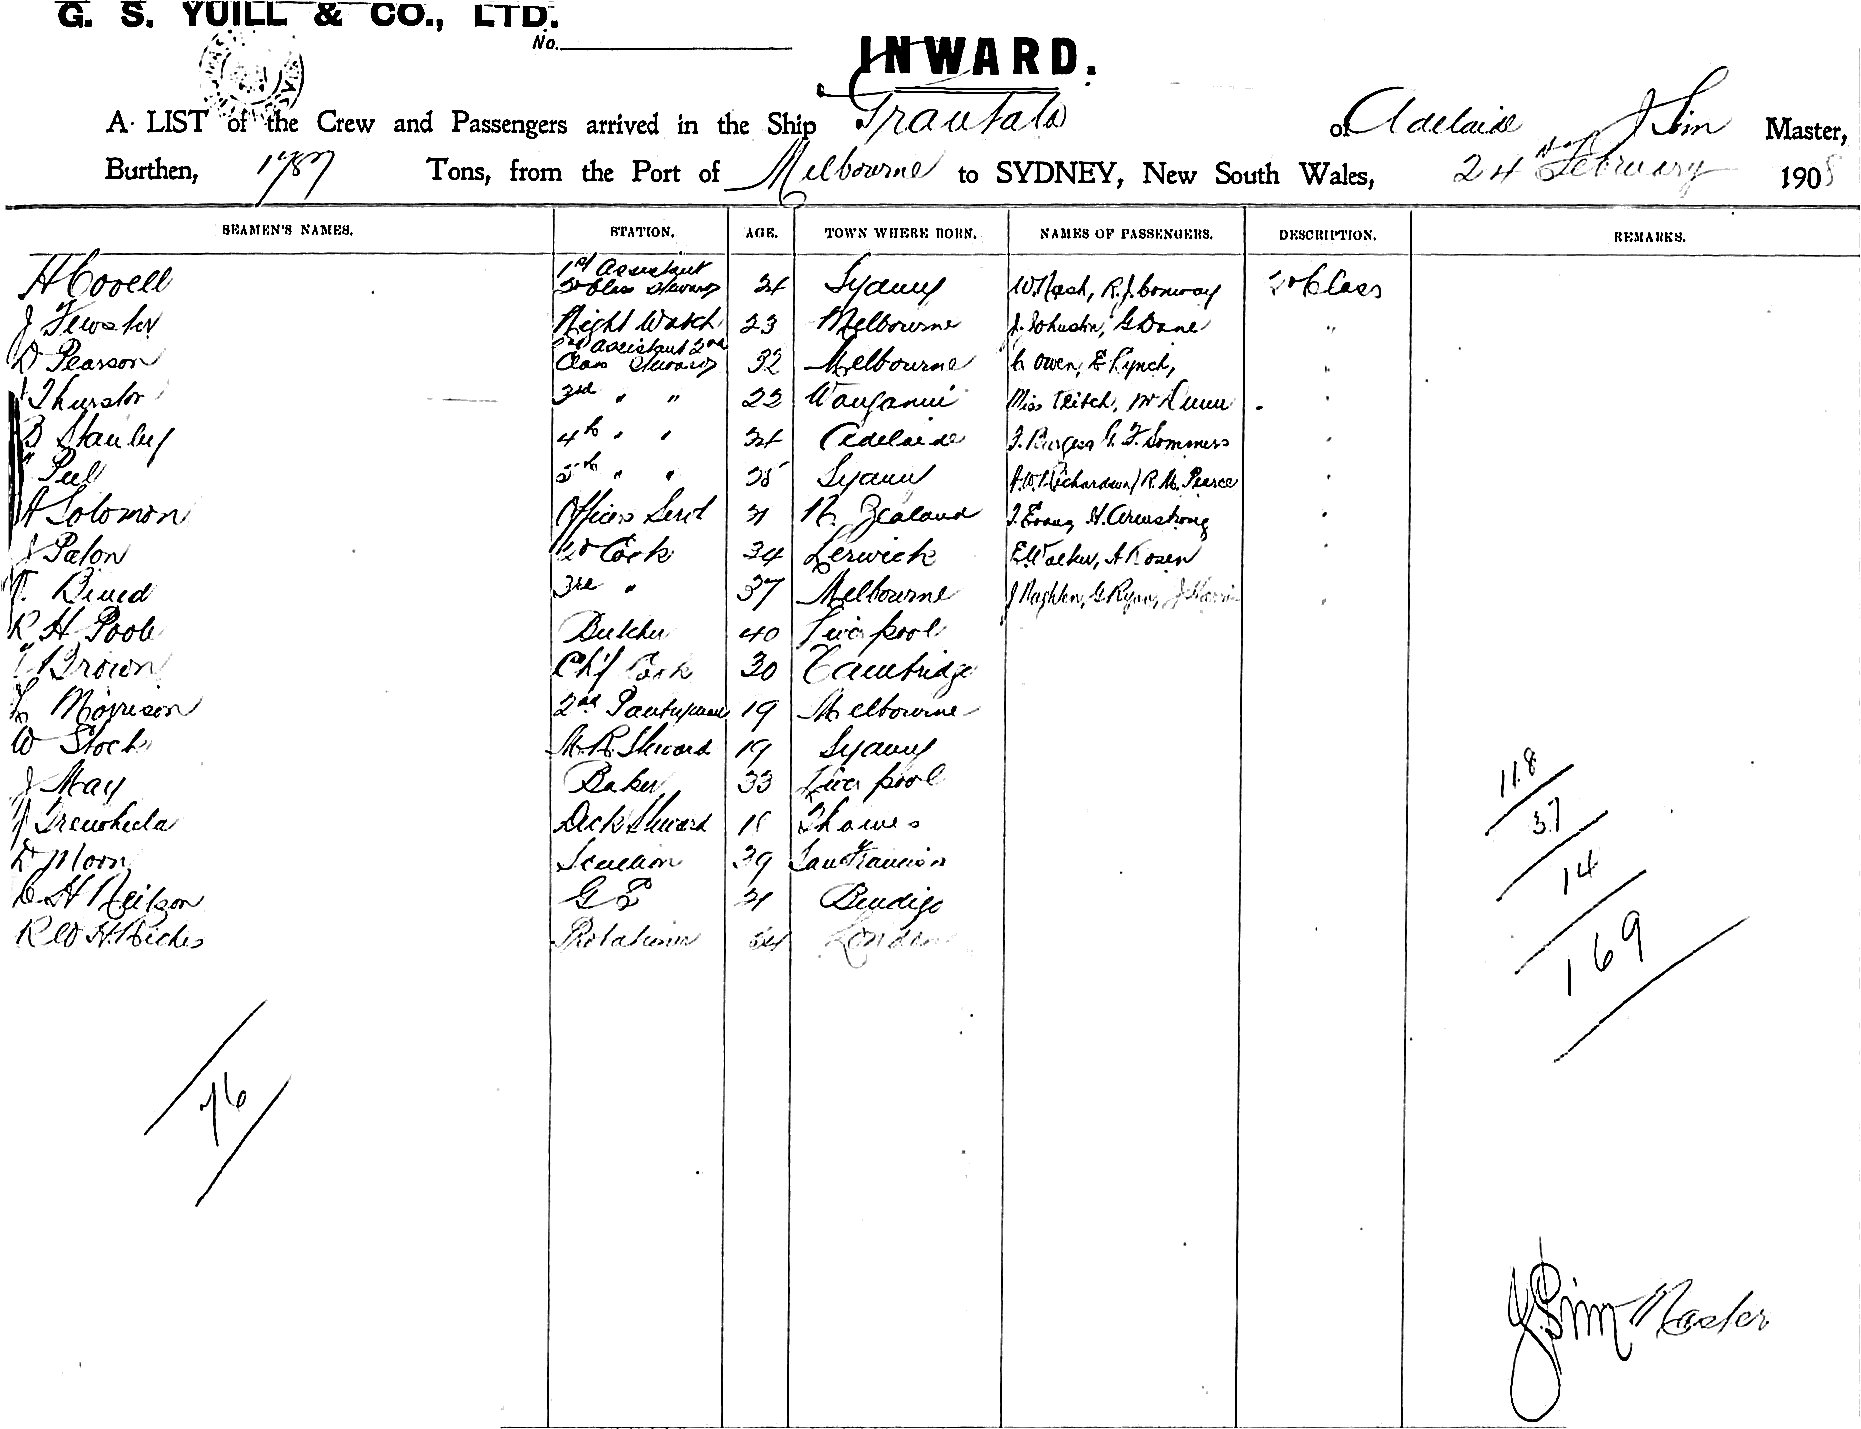 G. S. YUILL & CO., LTD.
No.
INWARD.
A LIST of the Crew and Passengers arrived in the Ship Grantala of Adelaide J Sim Master,
Burthen, 1787 Tons, from the Port of Melbourne to SYDNEY, New South Wales, 24 February 1908
SEAMEN'S NAMES. STATION. AGE. TOWN WHERE BORN. NAMES OF PASSENGERS. DESCRIPTION. REMARKS.
H Covell 1st Assistant 2d Class Steward Sydney W. Nash, R. J. Conway 2d Class
J Fewster Night Watch 23 Melbourne J. Johnston, G Dane "
D Pearson 2nd Assistant 2nd Class Steward 32 Melbourne C Owen, E Lynch, "
J Thurston 3rd " " 22 Wanganui Miss "
B Stanley 4th " " Adelaide J. Burgess G. F. Sommers "
Peel 5th " " Sydney A. W. Richardson, R. M. Pearce "
A Solomon Officers Servt N. Zealand J. Evans, H. Armstrong "
J Paton 2d Cook 34 Lerwick E. Walker, A Rosen "
3rd " 37 Melbourne J Naghten, G Ryan, J Harris "
R H Poole Butcher 40 Liverpool
Brown Chf Cook 30 Cambridge
Morrison 2nd Pantryman 19 Melbourne
W Stock M. R. Steward 19 Sydney
J May Baker 33 Liverpool
J Trewheela Deck Steward Thames
D Moon Scullion 39 San Francisco
C H Neilson G S Bendigo
R W H. Riches London
118
37
14
169
76
J. Sim Master